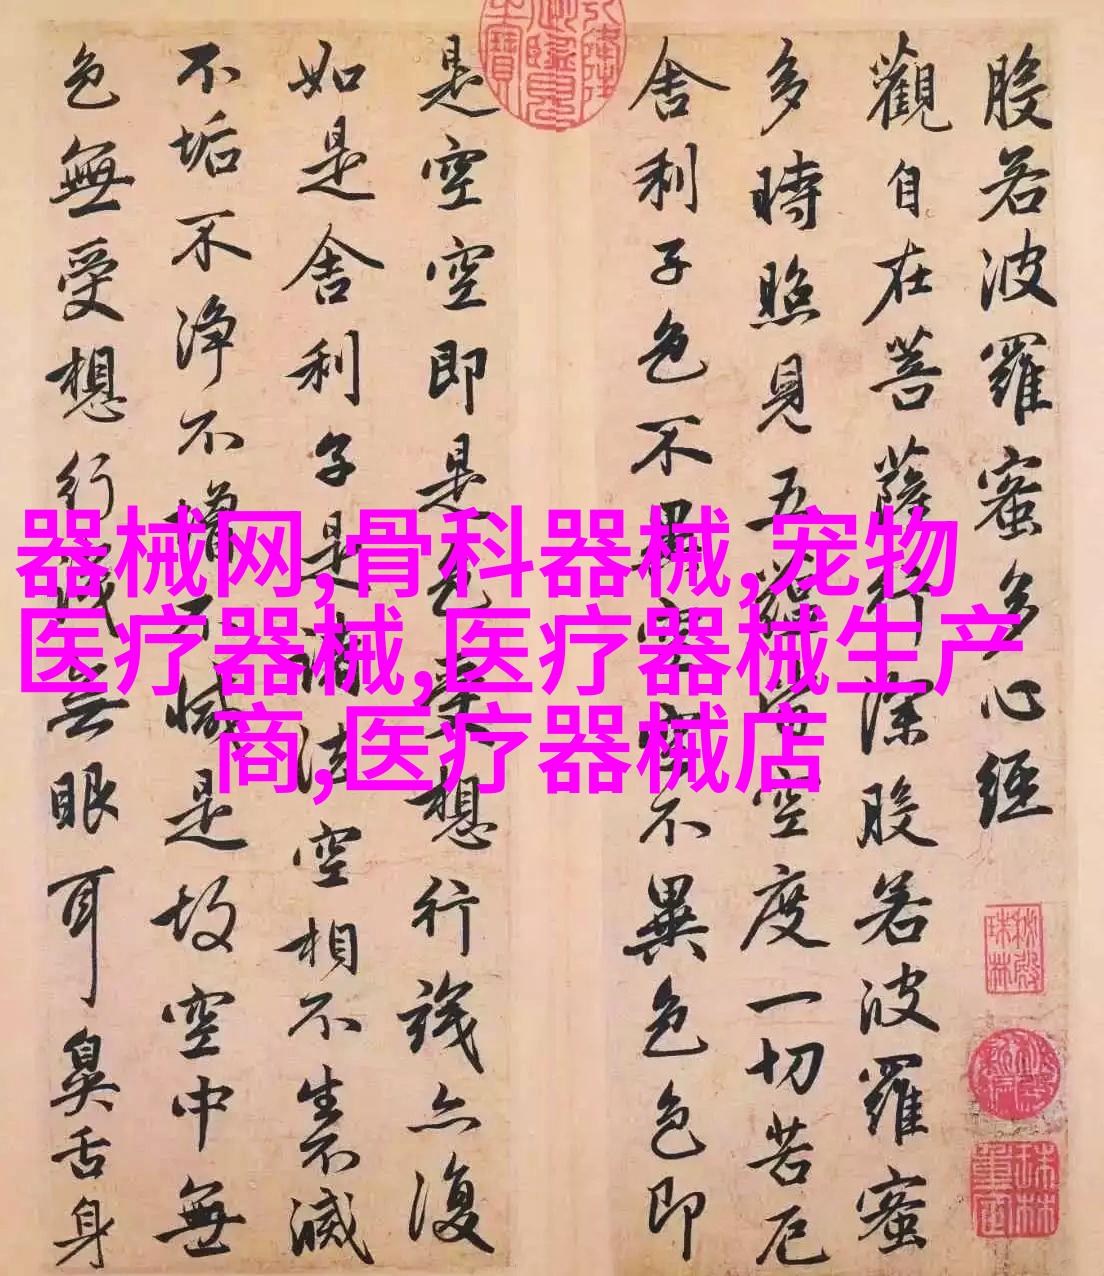 般若波羅蜜多心經
觀自在菩薩行深般若波羅蜜
多時照見五蘊皆空度一切苦厄
舍利子色不異空空不異色色即
是空空即是色受想行識亦復
如是舍利子是諸法空相不生不滅
不垢不净不增不減是故空中無
色無受想行識无眼耳鼻舌身
器械网,骨科器械,宠物
医疗器械,医疗器械生产
商,医疗器械店